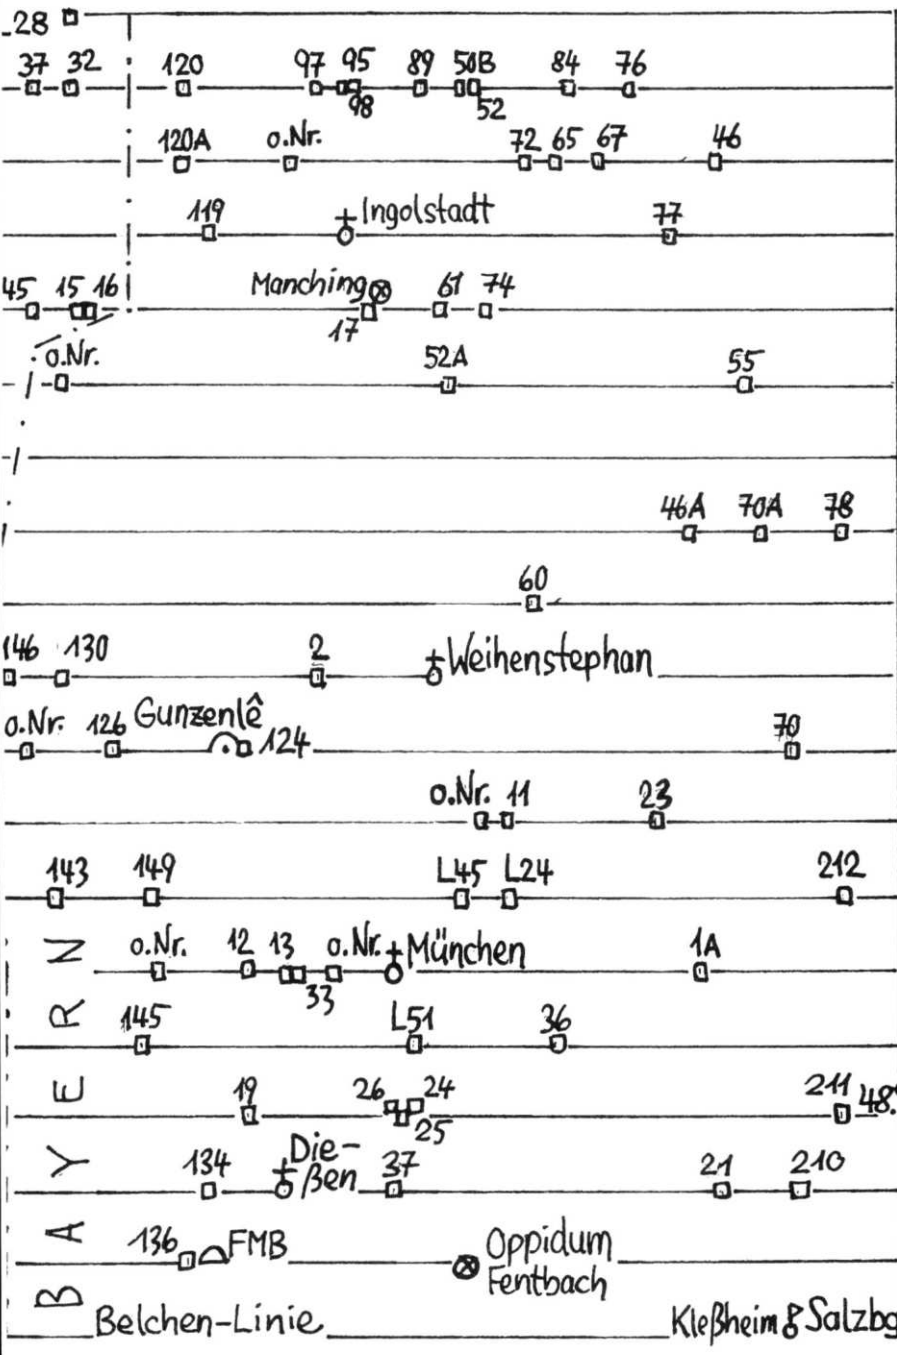 28
37 32 120 97 95 89 50B 84 76
98 52
120A o.Nr. 72 65 67 46
119 Ingolstadt 77
45 15 16 Manching 61 74
17
o.Nr. 52A 55
46A 70A 78
60
146 130 2 Weihenstephan
o.Nr. 126 Gunzenlê 124 70
o.Nr. 11 23
143 149 L45 L24 212
o.Nr. 12 13 o.Nr. München 1A
33
145 L51 36
19 26 24 211 48.
25
134 Die-
ßen 37 21 210
136 FMB Oppidum
Fentbach
BAYERN
Belchen-Linie Kleßheim Salzbg